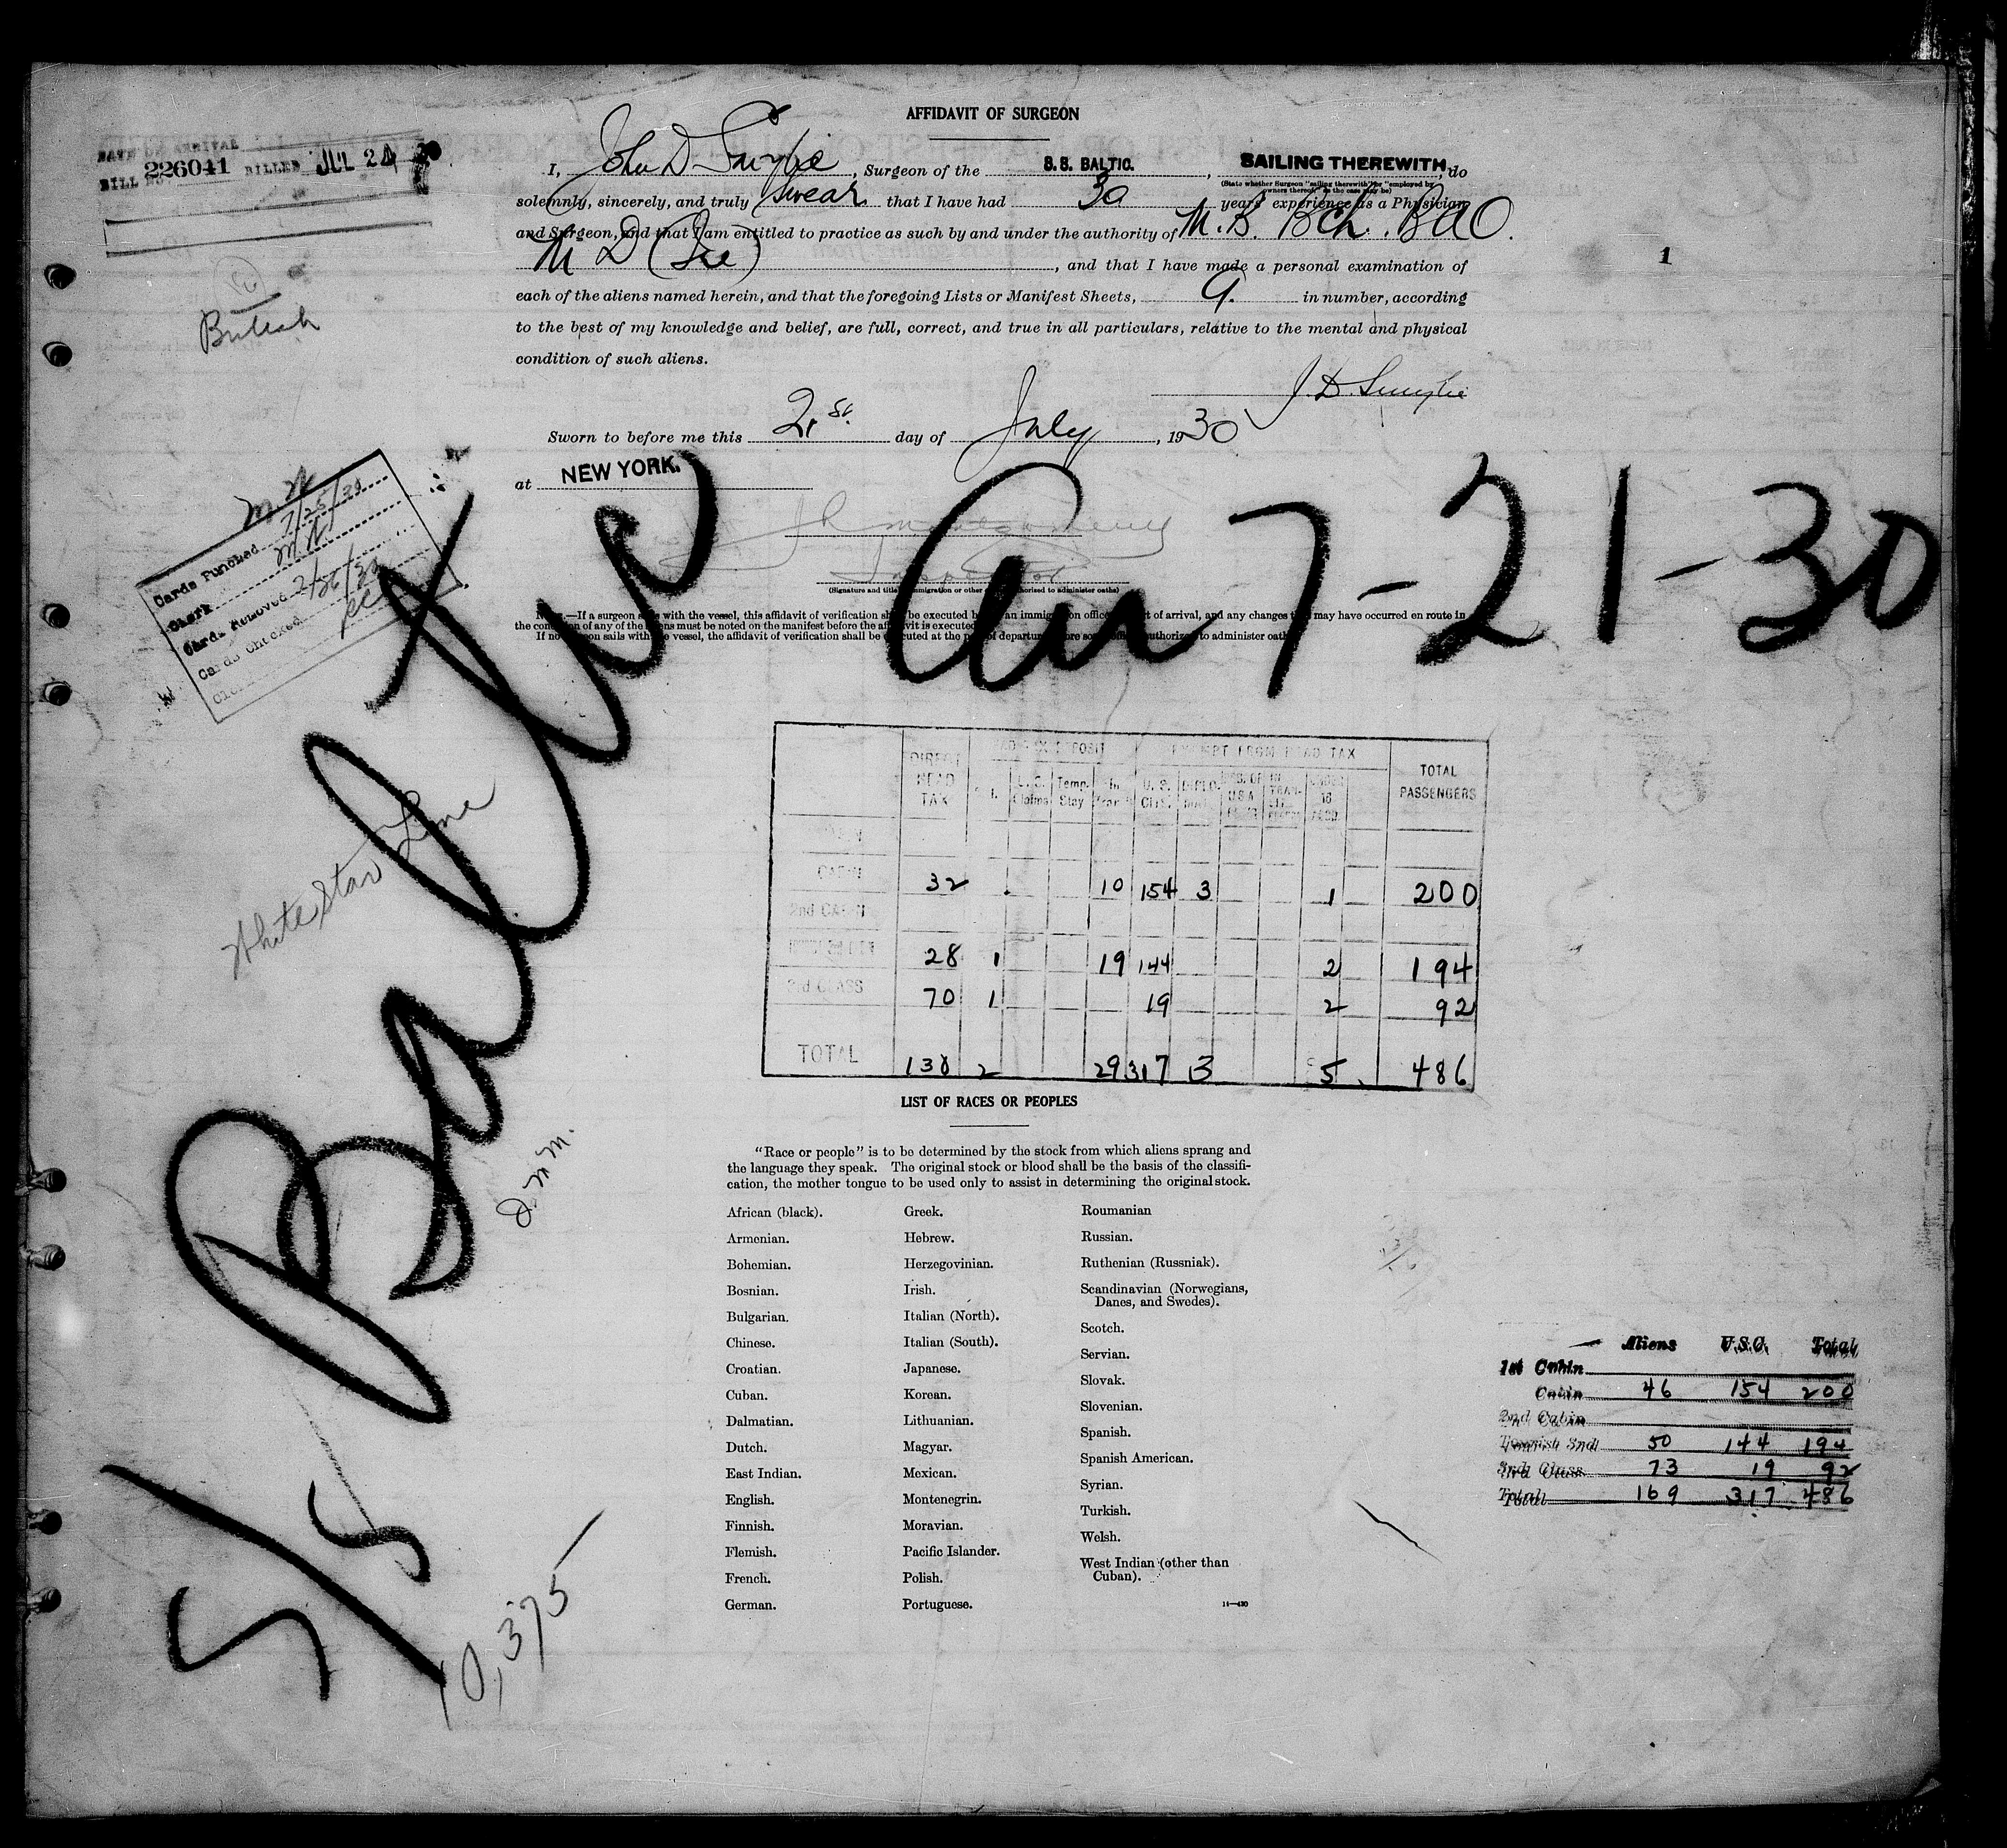 AFFIDAVIT OF SURGEON
DATE OF ARRIVAL
226041 BILLED JUL 24
BILL NO.
I, John D , Surgeon of the S. S. BALTIC. , SAILING THEREWITH, do
(State whether Surgeon "sailing therewith" or "employed by owners thereof," as the case may be)
solemnly, sincerely, and truly swear that I have had 30 years' experience as a Physician
and Surgeon, and that I am entitled to practice as such by and under the authority of M. B. Bch. BAO.
M D , and that I have made a personal examination of
each of the aliens named herein, and that the foregoing Lists or Manifest Sheets, 9. in number, according
to the best of my knowledge and belief, are full, correct, and true in all particulars, relative to the mental and physical
condition of such aliens.
1
British
J. D.
Sworn to before me this 21st. day of July, 1930
at NEW YORK.
Montgomery
Inspector
(Signature and title of immigration or other officer authorized to administer oaths)
NOTE.—If a surgeon sails with the vessel, this affidavit of verification shall be executed before an immigration officer at port of arrival, and any changes that may have occurred en route in
the condition of any of the aliens must be noted on the manifest before the affidavit is executed.
If no surgeon sails with the vessel, the affidavit of verification shall be executed at the port of departure before some officer authorized to administer oaths.
Cards Punched 7/25/30
Clerk M.N.
Cards Removed
Cards Checked
Clerk
S/S Baltic
Arr 7-21-30
White Star Line
10,375
DIRECT HEAD TAX
HEAD TAX DEPOSIT
U.S. Claims
Temp. Stay
EXEMPT FROM HEAD TAX
U. S. CITZ.
DIPLO.
UNDER 16
TOTAL PASSENGERS
CABIN 32 10 154 3 1 200
2nd CABIN
28 1 19 144 2 194
3rd CLASS 70 1 19 2 92
TOTAL 130 2 29 317 3 5 486
LIST OF RACES OR PEOPLES
"Race or people" is to be determined by the stock from which aliens sprang and
the language they speak. The original stock or blood shall be the basis of the classifi-
cation, the mother tongue to be used only to assist in determining the original stock.
African (black).
Armenian.
Bohemian.
Bosnian.
Bulgarian.
Chinese.
Croatian.
Cuban.
Dalmatian.
Dutch.
East Indian.
English.
Finnish.
Flemish.
French.
German.
Greek.
Hebrew.
Herzegovinian.
Irish.
Italian (North).
Italian (South).
Japanese.
Korean.
Lithuanian.
Magyar.
Mexican.
Montenegrin.
Moravian.
Pacific Islander.
Polish.
Portuguese.
Roumanian
Russian.
Ruthenian (Russniak).
Scandinavian (Norwegians,
Danes, and Swedes).
Scotch.
Servian.
Slovak.
Slovenian.
Spanish.
Spanish American.
Syrian.
Turkish.
Welsh.
West Indian (other than
Cuban).
14—430
Aliens U.S.C. Total
1st Cabin
Cabin 46 154 200
2nd Cabin
Tourish 3rd 50 144 194
3rd Class 73 19 92
Total 169 317 486